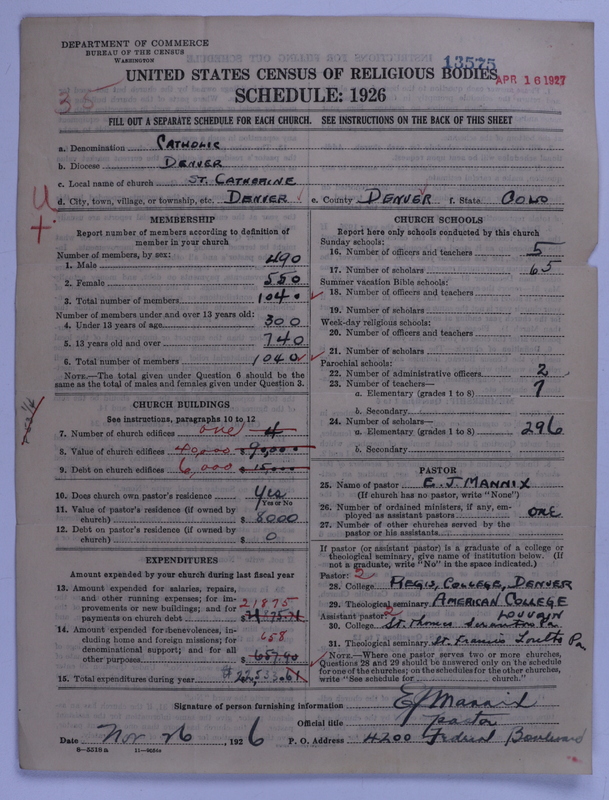 DEPARTMENT OF COMMERCE
BUREAU OF THE CENSUS
WASHINGTON
13575
APR 16 1927
UNITED STATES CENSUS OF RELIGIOUS BODIES
SCHEDULE: 1926
35
FILL OUT A SEPARATE SCHEDULE FOR EACH CHURCH. SEE INSTRUCTIONS ON THE BACK OF THIS SHEET
a. Denomination CATHOLIC
b. Diocese DENVER
c. Local name of church ST. CATHERINE
d. City, town, village, or township, etc. DENVER e. County DENVER f. State COLO
MEMBERSHIP
Report number of members according to definition of
member in your church
Number of members, by sex:
1. Male 490
2. Female 550
3. Total number of members 1040
Number of members under and over 13 years old:
4. Under 13 years of age 300
5. 13 years old and over 740
6. Total number of members 1040
NOTE.—The total given under Question 6 should be
same as the total of males and females given under Question 3.
CHURCH BUILDINGS
See instructions, paragraphs 10 to 12
7. Number of church edifices one 4
8. Value of church edifices 40,000 $90,000
9. Debt on church edifices 6,000 $15,000
10. Does church own pastor's residence Yes
Yes or No
11. Value of pastor's residence (if owned by
church) $ 8000
12. Debt on pastor's residence (if owned by
church) $ 0
EXPENDITURES
Amount expended by your church during last fiscal year
13. Amount expended for salaries, repairs,
and other running expenses; for im-
provements or new buildings; and for
payments on church debt 21875
14. Amount expended for benevolences, in-
cluding home and foreign missions; for
denominational support; and for all
other purposes 658 657.90
15. Total expenditures during year $ 22,533.61
CHURCH SCHOOLS
Report here only schools conducted by this church
Sunday schools:
16. Number of officers and teachers 5
17. Number of scholars 65
Summer vacation Bible schools:
18. Number of officers and teachers
19. Number of scholars
Week-day religious schools:
20. Number of officers and teachers
21. Number of scholars
Parochial schools:
22. Number of administrative officers 2
23. Number of teachers—
a. Elementary (grades 1 to 8) 7
b. Secondary
24. Number of scholars—
a. Elementary (grades 1 to 8) 296
b. Secondary
PASTOR
25. Name of pastor E. J. MANNIX
(If church has no pastor, write "None")
26. Number of ordained ministers, if any, em-
ployed as assistant pastors ONE
27. Number of other churches served by the
pastor or his assistants
If pastor (or assistant pastor) is a graduate of a college or
theological seminary, give name of institution below. (If
not a graduate, write "No" in the space indicated.)
Pastor: 2
28. College REGIS, COLLEGE, DENVER
29. Theological seminary AMERICAN COLLEGE
Assistant pastor: 2 LOUVAIN
30. College St. Thomas
31. Theological seminary St. Francis Loretto Pa
NOTE.—Where one pastor serves two or more churches,
Questions 28 and 29 should be answered only on the schedule
for one of the churches; on the schedules for the other churches,
write "See schedule for church."
Signature of person furnishing information E J Mannix
Official title pastor
Date Nov 26, 1926 P. O. Address 4200 Federal Boulevard
8—5318a 11—9054a